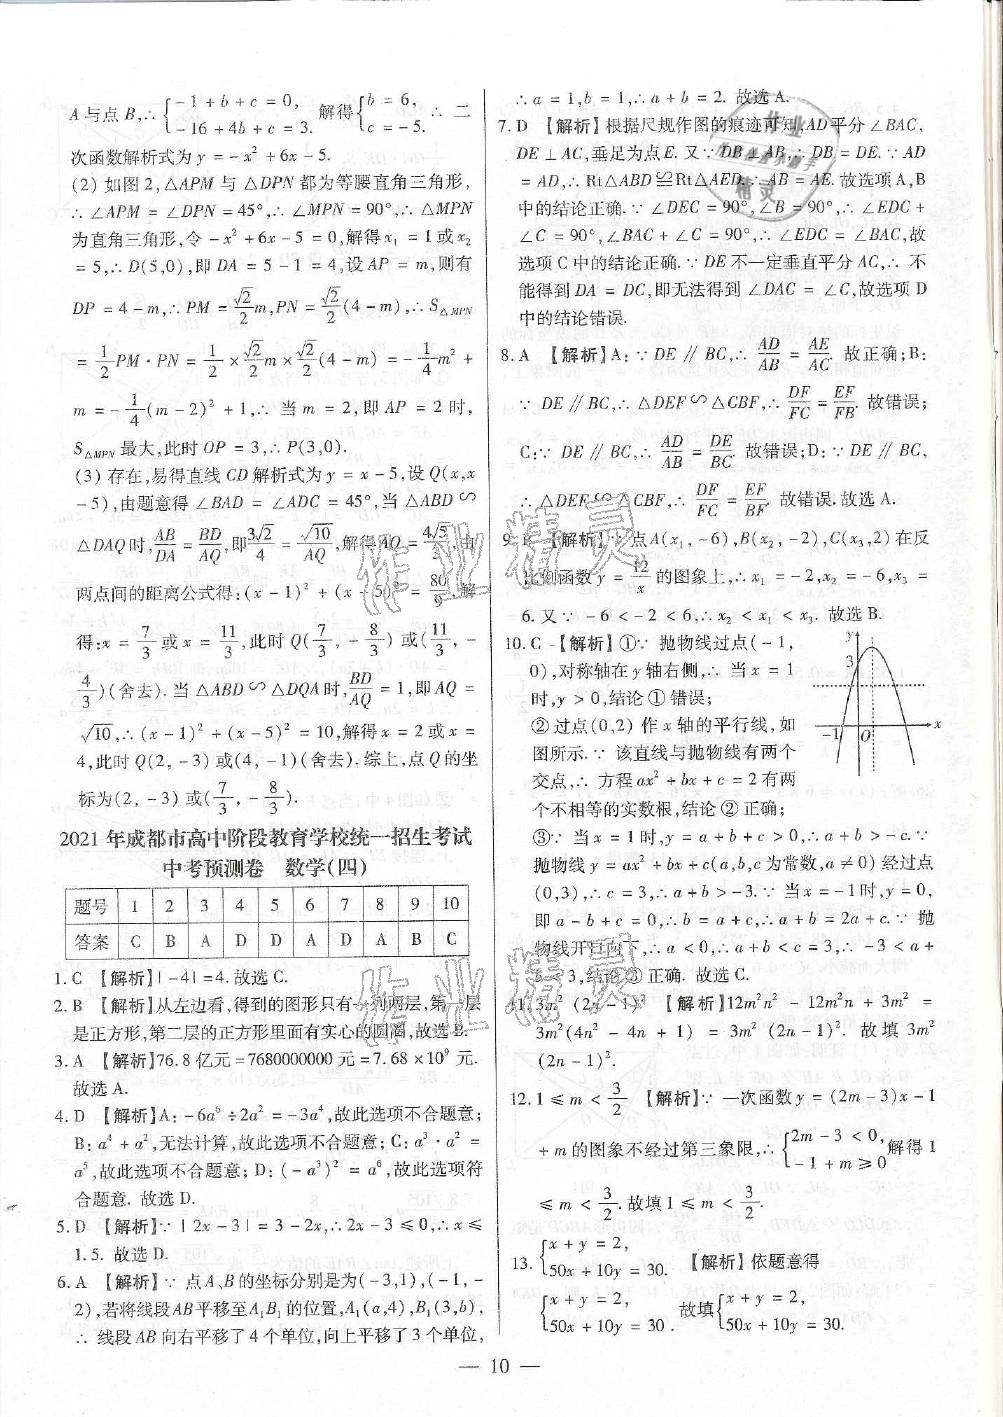 A与点B,∴{-1+b+c=0, -16+4b+c=3. 解得{b=6, c=-5. ∴ 二
次函数解析式为 y=-x²+6x-5.
(2) 如图2,△APM 与 △DPN 都为等腰直角三角形,
∴∠APM=∠DPN=45°,∴∠MPN=90°,∴△MPN
为直角三角形,令-x²+6x-5=0,解得x₁=1或x₂
=5,∴D(5,0),即DA=5-1=4,设AP=m,则有
DP=4-m,∴PM=√2/2 m,PN=√2/2(4-m),∴S△MPN
=1/2 PM·PN=1/2×√2/2 m×√2/2(4-m)=-1/4 m²+
m=-1/4(m-2)²+1,∴ 当m=2,即AP=2时,
S△MPN最大,此时OP=3,∴P(3,0).
(3) 存在,易得直线CD解析式为y=x-5,设Q(x,x
-5),由题意得∠BAD=∠ADC=45°,当△ABD∽
△DAQ时,AB/DA=BD/AQ,即3√2/4=√10/AQ,解得AQ=4√5/3,由
两点间的距离公式得:(x-1)²+(x-5)²=80/9,解
得:x=7/3或x=11/3,此时Q(7/3,-8/3)或(11/3,-
4/3)(舍去).当△ABD∽△DQA时,BD/AQ=1,即AQ=
√10,∴(x-1)²+(x-5)²=10,解得x=2或x=
4,此时Q(2,-3)或(4,-1)(舍去).综上,点Q的坐
标为(2,-3)或(7/3,-8/3).
2021年成都市高中阶段教育学校统一招生考试
中考预测卷 数学(四)
题号 1 2 3 4 5 6 7 8 9 10
答案 C B A D D A D A B C
1. C 【解析】|-4|=4.故选C.
2. B 【解析】从左边看,得到的图形只有一列两层,第一层
是正方形,第二层的正方形里面有实心的圆圈,故选B.
3. A 【解析】76.8亿元=7680000000元=7.68×10⁹元.
故选A.
4. D 【解析】A:-6a⁶÷2a²=-3a⁴,故此选项不合题意;
B:a⁴+a²,无法计算,故此选项不合题意;C:a³·a²=
a⁵,故此选项不合题意;D:(-a³)²=a⁶,故此选项符
合题意. 故选D.
5. D 【解析】∵|2x-3|=3-2x,∴2x-3≤0,∴x≤
1.5. 故选D.
6. A 【解析】∵ 点A、B的坐标分别是为(-3,1),(-1,-
2),若将线段AB平移至A₁B₁的位置,A₁(a,4),B₁(3,b),
∴ 线段AB向右平移了4个单位,向上平移了3个单位,
∴a=1,b=1,∴a+b=2. 故选A.
7. D 【解析】根据尺规作图的痕迹可知,AD平分∠BAC,
DE⊥AC,垂足为点E.又∵DB⊥AB,∴DB=DE.又∵AD
=AD,∴Rt△ABD≌Rt△AED.∴AB=AE.故选项A,B
中的结论正确.∵∠DEC=90°,∠B=90°,∴∠EDC+
∠C=90°,∠BAC+∠C=90°,∴∠EDC=∠BAC,故
选项C中的结论正确.∵DE不一定垂直平分AC,∴ 不
能得到DA=DC,即无法得到∠DAC=∠C,故选项D
中的结论错误.
8. A 【解析】A:∵DE∥BC,∴AD/AB=AE/AC. 故正确;B:
∵DE∥BC,∴△DEF∽△CBF,∴DF/FC=EF/FB. 故错误;
C:∵DE∥BC,∴AD/AB=DE/BC. 故错误;D:∵DE∥BC,
∴△DEF∽△CBF,∴DF/FC=EF/BF. 故错误.故选A.
9. B 【解析】∵点A(x₁,-6),B(x₂,-2),C(x₃,2)在反
比例函数y=12/x的图象上,∴x₁=-2,x₂=-6,x₃=
6. 又∵-6<-2<6,∴x₂<x₁<x₃. 故选B.
10. C 【解析】①∵ 抛物线过点(-1,
0),对称轴在y轴右侧,∴ 当x=1
时,y>0,结论①错误;
②过点(0,2)作x轴的平行线,如
图所示.∵ 该直线与抛物线有两个
交点,∴ 方程ax²+bx+c=2有两
个不相等的实数根,结论②正确;
③∵ 当x=1时,y=a+b+c>0,∴a+b>-c.∵
抛物线y=ax²+bx+c(a,b,c为常数,a≠0)经过点
(0,3),∴c=3,∴a+b>-3.∵ 当x=-1时,y=0,
即a-b+c=0,∴b=a+c,∴a+b=2a+c.∵ 抛
物线开口向下,∴a<0,∴a+b<c=3,∴-3<a+
b<3,结论③正确. 故选C.
y
3
-1
O
x
11. 3m²(2n-1)² 【解析】12m²n²-12m²n+3m²=
3m²(4n²-4n+1)=3m²(2n-1)². 故填3m²
(2n-1)².
12. 1≤m<3/2 【解析】∵ 一次函数y=(2m-3)x-1
+m的图象不经过第三象限,∴{2m-3<0, -1+m≥0 解得1
≤m<3/2. 故填1≤m<3/2.
13. {x+y=2, 50x+10y=30. 【解析】依题意得
{x+y=2, 50x+10y=30. 故填{x+y=2, 50x+10y=30.
— 10 —
作业精灵
作业精灵
作业
精灵